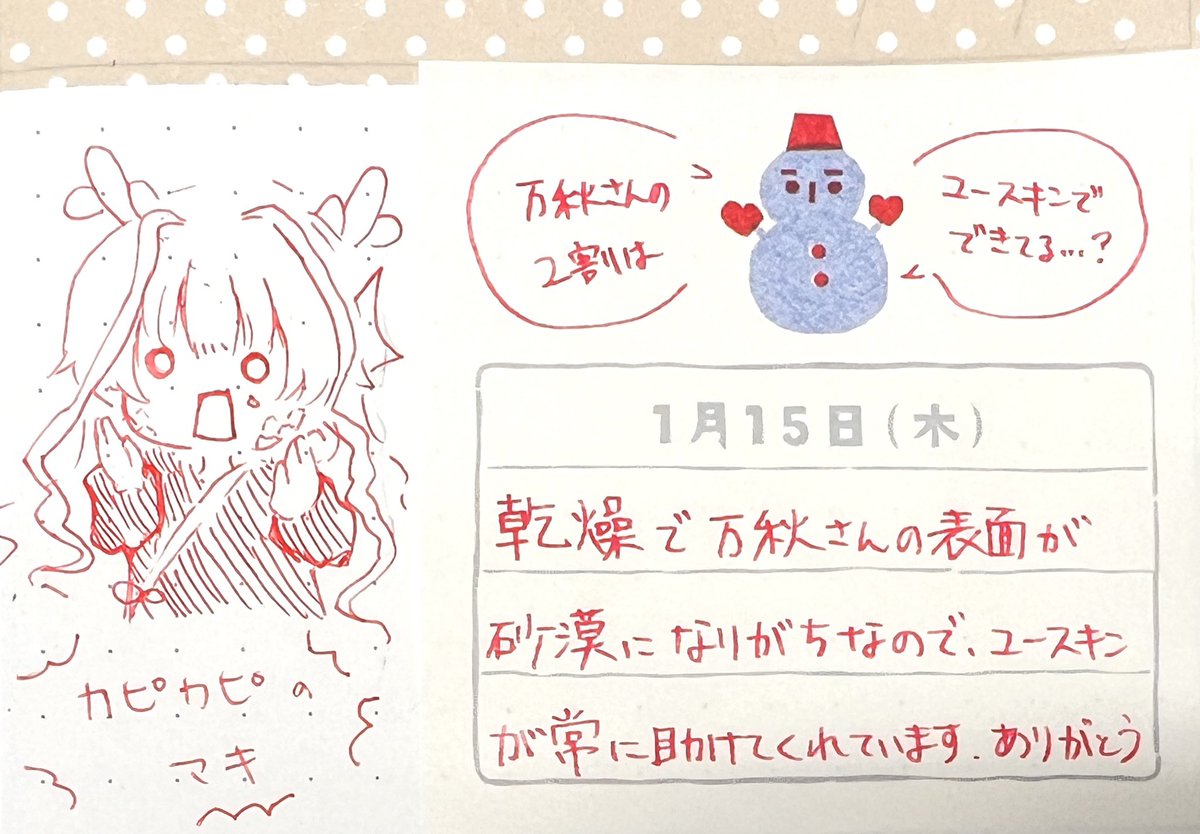 万秋さんの
2割は
ユースキンで
できてる…?
1月15日(木)
乾燥で万秋さんの表面が
砂漠になりがちなので、ユースキン
が常に助けてくれています。ありがとう
カピカピの
マキ